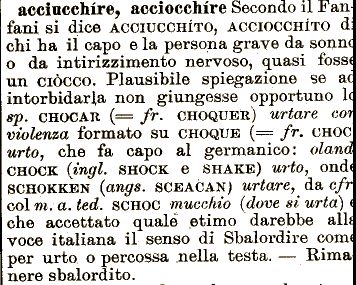 acciucchíre, acciocchíre Secondo il Fan-
fani si dice ACCIUCCHÍTO, ACCIOCCHÍTO di
chi ha il capo e la persona grave da sonno
o da intirizzimento nervoso, quasi fosse
un CIÒCCO. Plausibile spiegazione se ad
intorbidarla non giungesse opportuno lo
sp. CHOCAR (= fr. CHOQUER) urtare con
violenza formato su CHOQUE (= fr. CHOC)
urto, che fa capo al germanico: oland.
CHOCK (ingl. SHOCK e SHAKE) urto, onde
SCHOKKEN (angs. SCEACAN) urtare, da cfr.
col m. a. ted. SCHOC mucchio (dove si urta) e
che accettato quale etimo darebbe alla
voce italiana il senso di Sbalordire come
per urto o percossa nella testa. — Rima-
nere sbalordito.